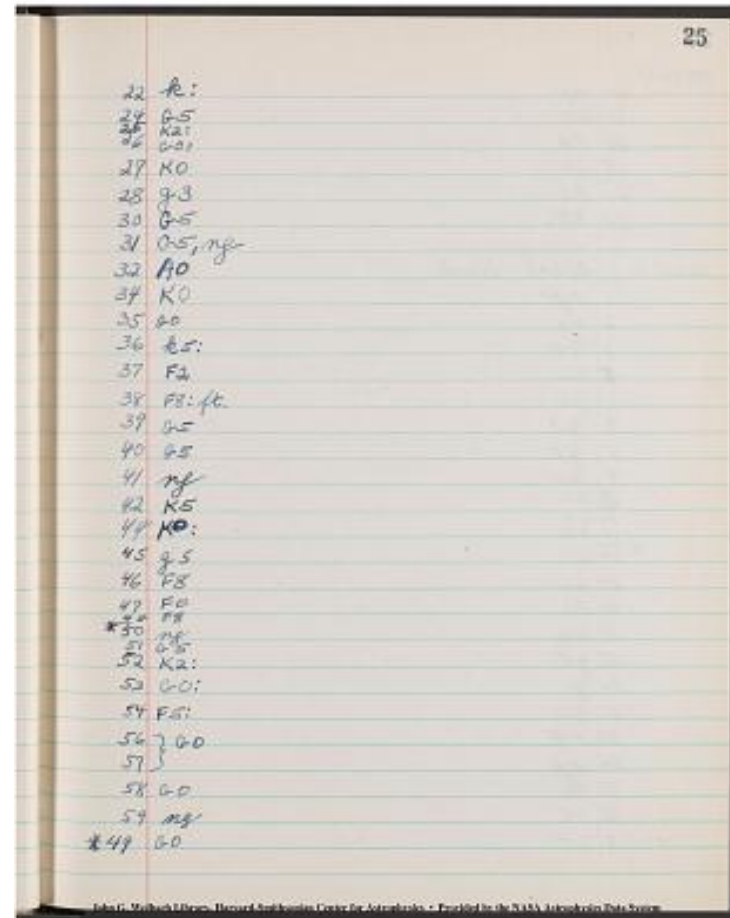 25
22 k:
24 G5
25 K2:
26 G0:
27 K0
28 g3
30 G5
31 G5, ng
32 A0
34 K0
35 G0
36 k5:
37 F2
38 F8: ft.
39 G5
40 G5
41 ng
42 K5
44 K0:
45 g5
46 F8
47 F0
F8
*50 ng
51 G5
52 K2:
53 G0:
54 F5:
56 } G0
57
58 G0
59 ng
*49 G0
John G. Wolbach Library, Harvard-Smithsonian Center for Astrophysics • Provided by the NASA Astrophysics Data System